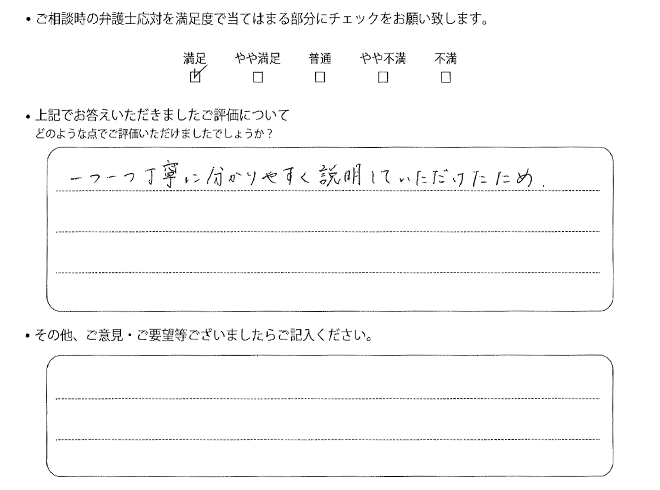 ・ご相談時の弁護士応対を満足度で当てはまる部分にチェックをお願い致します。
満足 やや満足 普通 やや不満 不満
☑ □ □ □ □
・上記でお答えいただきましたご評価について
どのような点でご評価いただけましたでしょうか？
一つ一つ丁寧に分かりやすく説明していただけたため.
・その他、ご意見・ご要望等ございましたらご記入ください。